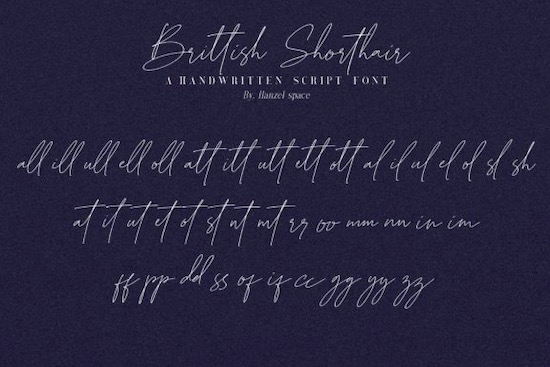 Brittish Shorthair
A HANDWRITTEN SCRIPT FONT
By. Hanzel space
all ill ull ell oll att itt utt ett ott al il ul el ol sl sh
at it ut et ot st nt mt rr oo mm nn in im
ff pp dd ss of if cc gg yy zz